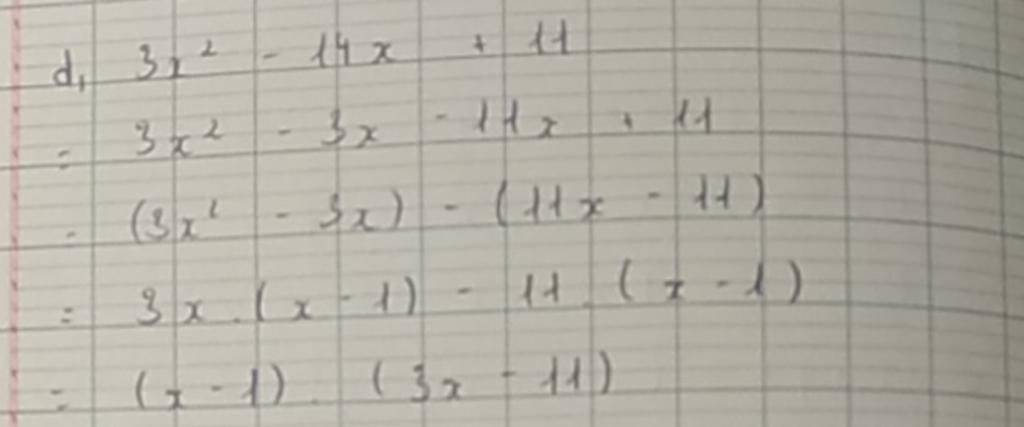 d, 3x² - 14x + 11
= 3x² - 3x - 11x + 11
= (3x² - 3x) - (11x - 11)
= 3x.(x - 1) - 11.(x - 1)
= (x - 1).(3x - 11)